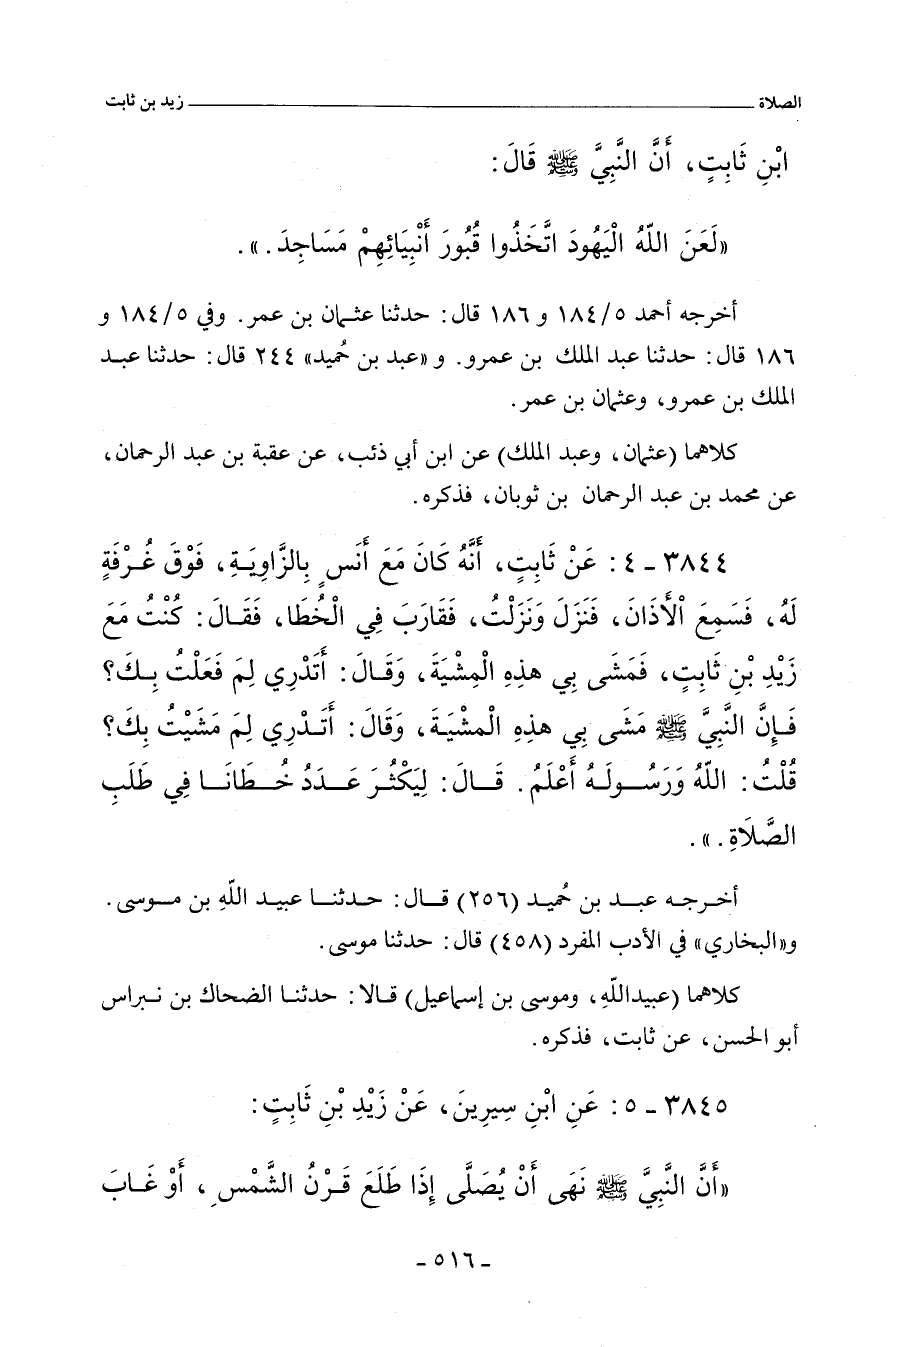 الصلاة ــــــــــــــــ زيد بن ثابت
ابْنِ ثَابِتٍ، أَنَّ النَّبِيَّ ﷺ قَالَ:
«لَعَنَ اللّهُ الْيَهُودَ اتَّخَذُوا قُبُورَ أَنْبِيَائِهِمْ مَسَاجِدَ.».
أخرجه أحمد ١٨٤/٥ و ١٨٦ قال: حدثنا عثمان بن عمر. وفي ١٨٤/٥ و
١٨٦ قال: حدثنا عبد الملك بن عمرو. و «عبد بن حُميد» ٢٤٤ قال: حدثنا عبد
الملك بن عمرو، وعثمان بن عمر.
كلاهما (عثمان، وعبد الملك) عن ابن أبي ذئب، عن عقبة بن عبد الرحمان،
عن محمد بن عبد الرحمان بن ثوبان، فذكره.
٣٨٤٤ - ٤ : عَنْ ثَابِتٍ، أَنَّهُ كَانَ مَعَ أَنَسٍ بِالزَّاوِيَةِ، فَوْقَ غُرْفَةٍ
لَهُ، فَسَمِعَ الْأَذَانَ، فَنَزَلَ وَنَزَلْتُ، فَقَارَبَ فِي الْخُطَا، فَقَالَ: كُنْتُ مَعَ
زَيْدِ بْنِ ثَابِتٍ، فَمَشَى بِي هذِهِ الْمِشْيَةَ، وَقَالَ: أَتَدْرِي لِمَ فَعَلْتُ بِكَ؟
فَإِنَّ النَّبِيَّ ﷺ مَشَى بِي هذِهِ الْمِشْيَةَ، وَقَالَ: أَتَدْرِي لِمَ مَشَيْتُ بِكَ؟
قُلْتُ: اللّهُ وَرَسُولُهُ أَعْلَمُ. قَالَ: لِيَكْثُرَ عَدَدُ خُطَانَا فِي طَلَبِ
الصَّلَاةِ.».
أخرجه عبد بن حُميد (٢٥٦) قال: حدثنا عبيد اللّه بن موسى.
و«البخاري» في الأدب المفرد (٤٥٨) قال: حدثنا موسى.
كلاهما (عبيداللّه، وموسى بن إسماعيل) قالا: حدثنا الضحاك بن نبراس
أبو الحسن، عن ثابت، فذكره.
٣٨٤٥ - ٥ : عَنِ ابْنِ سِيرِينَ، عَنْ زَيْدِ بْنِ ثَابِتٍ:
«أَنَّ النَّبِيَّ ﷺ نَهَى أَنْ يُصَلَّى إِذَا طَلَعَ قَرْنُ الشَّمْسِ، أَوْ غَابَ
- ٥١٦ -